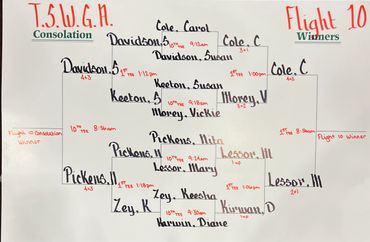 T.S.W.G.A.
Flight 10
Consolation
Winners
Cole, Carol
Davidson, S
10th TEE 9:12am
Cole, C
Davidson, Susan
3+1
Davidson, S
1st TEE 1:12pm
1st TEE 1:00pm
Cole, C
4+3
4+3
Keeton, Susan
Keeton, S
10th TEE 9:18am
Morey, V
Morey, Vickie
3+2
Flight 10 Consolation Winner
10th TEE 8:36am
1st TEE
Flight 10 Winner
Pickens, Nita
Pickens, N
10th TEE 9:24am
Lessor, M
Lessor, Mary
1up
Pickens, N
1st TEE 1:18pm
1st TEE 1:06pm
Lessor, M
4+3
2+1
Zey, Keesha
Zey, K
10th TEE 9:30am
Kirwan, D
Harwin, Diane
1up